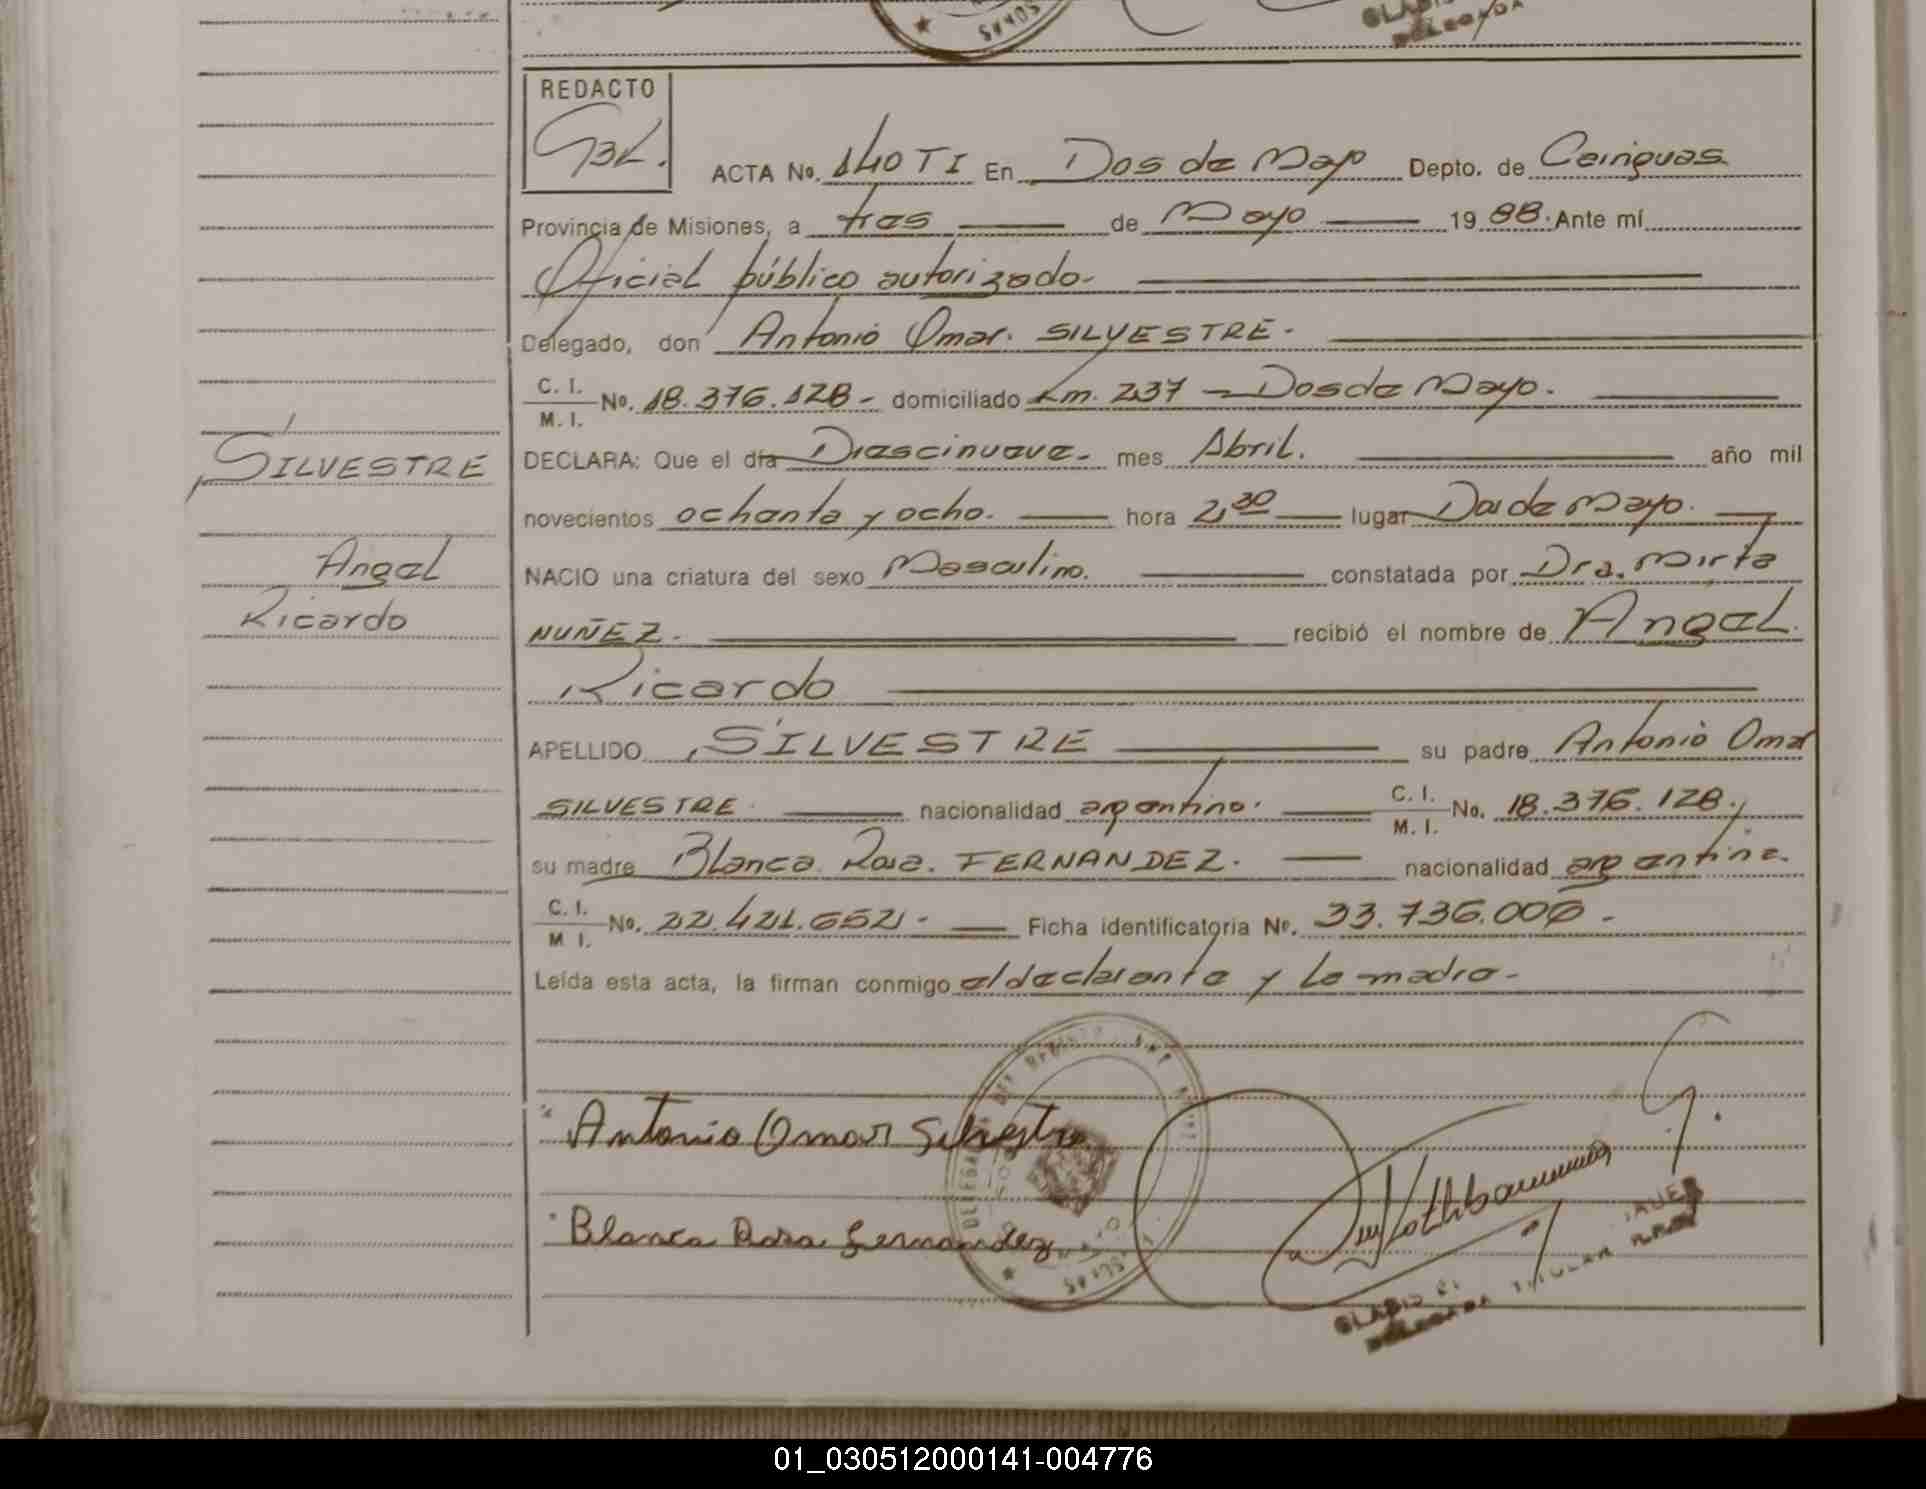 GLADIS
DELEGADA
REDACTO
ACTA No. 140 TI En Dos de Mayo Depto. de Cainguas
Provincia de Misiones, a tres de Mayo 1988. Ante mí
Oficial público autorizado-
Delegado, don Antonio Omar. SILVESTRE-
C. I.
M. I. No. 18.376.128- domiciliado km. 237 - Dos de Mayo.
SILVESTRE DECLARA: Que el día Diescinueve- mes Abril. año mil
novecientos ochenta y ocho. hora 2,30 lugar Dos de Mayo.
Angel NACIO una criatura del sexo Masculino. constatada por Dra. Mirta
Ricardo NUÑEZ. recibió el nombre de Angel
Ricardo
APELLIDO SILVESTRE su padre Antonio Omar
SILVESTRE nacionalidad argentino. C. I.
M. I. No. 18.376.128.
su madre Blanca Rosa. FERNANDEZ. nacionalidad argentina.
C. I.
M I. No. 22.421.652- Ficha identificatoria No. 33.736.006-
Leída esta acta, la firman conmigo el declarante y la madre-
Antonio Omar Silvestre
Blanca Rosa Fernandez
GLADIS
DELEGADA TITULAR
01_030512000141-004776